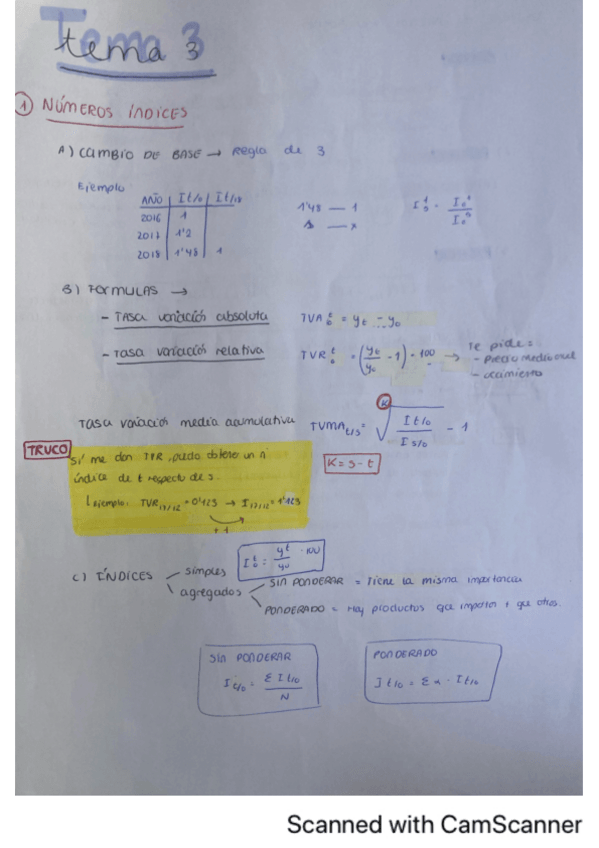 Tema 3
tema 3
① NÚMEROS ÍNDICES
A) CAMBIO DE BASE → Regla de 3
Ejemplo
AÑO | It/0 | It/18
2016 | 1
2017 | 1'2
2018 | 1'48 | 1
1'48 — 1
1 — x
I t s = I₀ᵗ / I₀ˢ
B) FORMULAS →
- TASA variación absoluta TVA t 0 = yt - y0
- Tasa variación relativa TVR t 0 = (yt/y0 - 1) · 100 → Te pide:
- precio medio
- crecimiento
Tasa variación media acumulativa TVMA t/s = K√(It/0 / Is/0) - 1
K = s - t
TRUCO
Si me dan TPR, puedo obtener un nº
índice de t respecto de s.
Ejemplo: TVR 17/12 = 0'123 → I 17/12 = 1'123
+ 1
C) ÍNDICES simples I t 0 = yt/y0 · 100
agregados SIN PONDERAR = Tiene la misma importancia
PONDERADO = Hay productos que importan + que otros.
SIN PONDERAR
It/0 = Σ It/0 / N
PONDERADO
It/0 = Σ α · It/0
Scanned with CamScanner